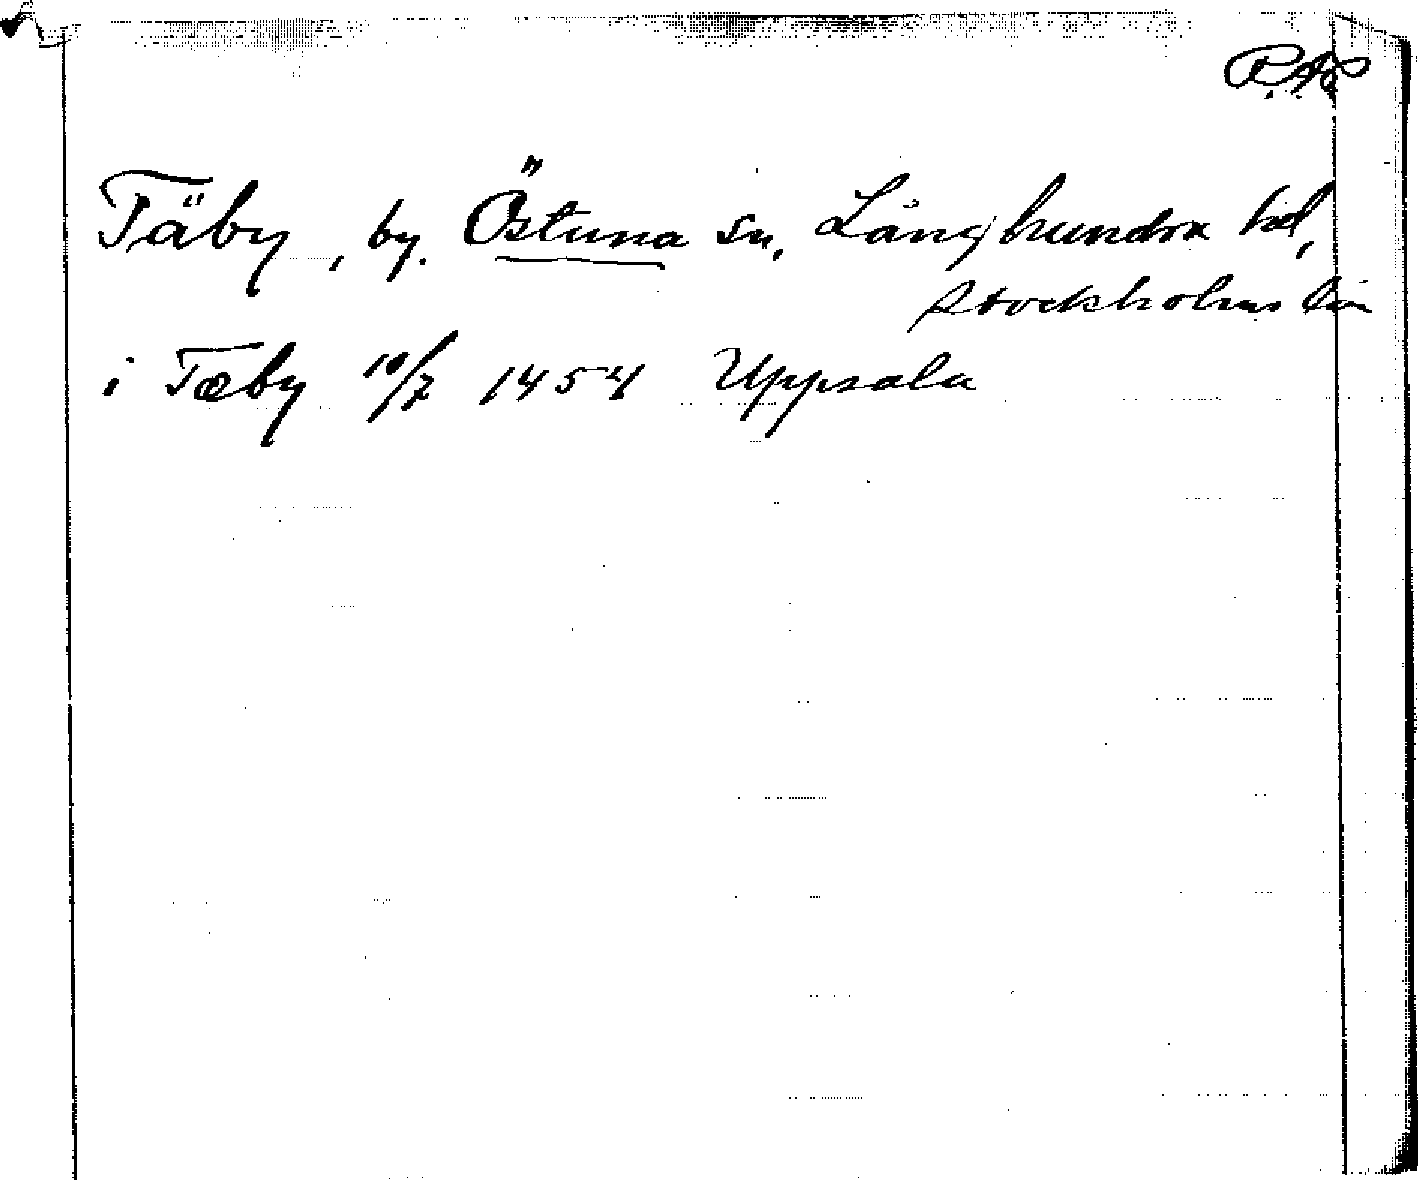 RAp
Täby, by. Östuna sn, Långhundra hd,
Stockholms län
i Tæby 10/7 1454 Uppsala